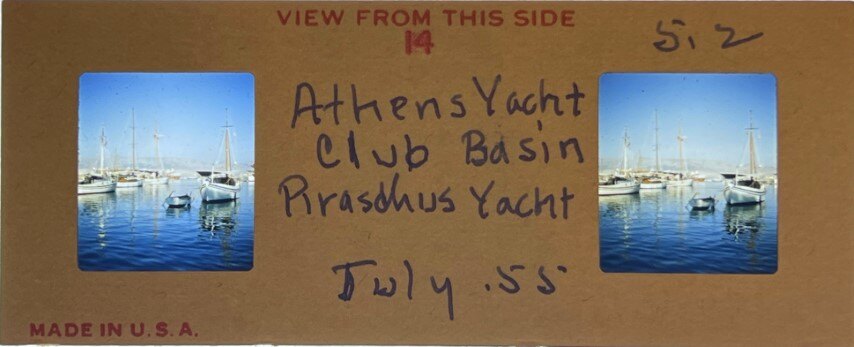 VIEW FROM THIS SIDE
14
5.2
Athens Yacht
Club Basin
Yacht
July .55
MADE IN U.S.A.